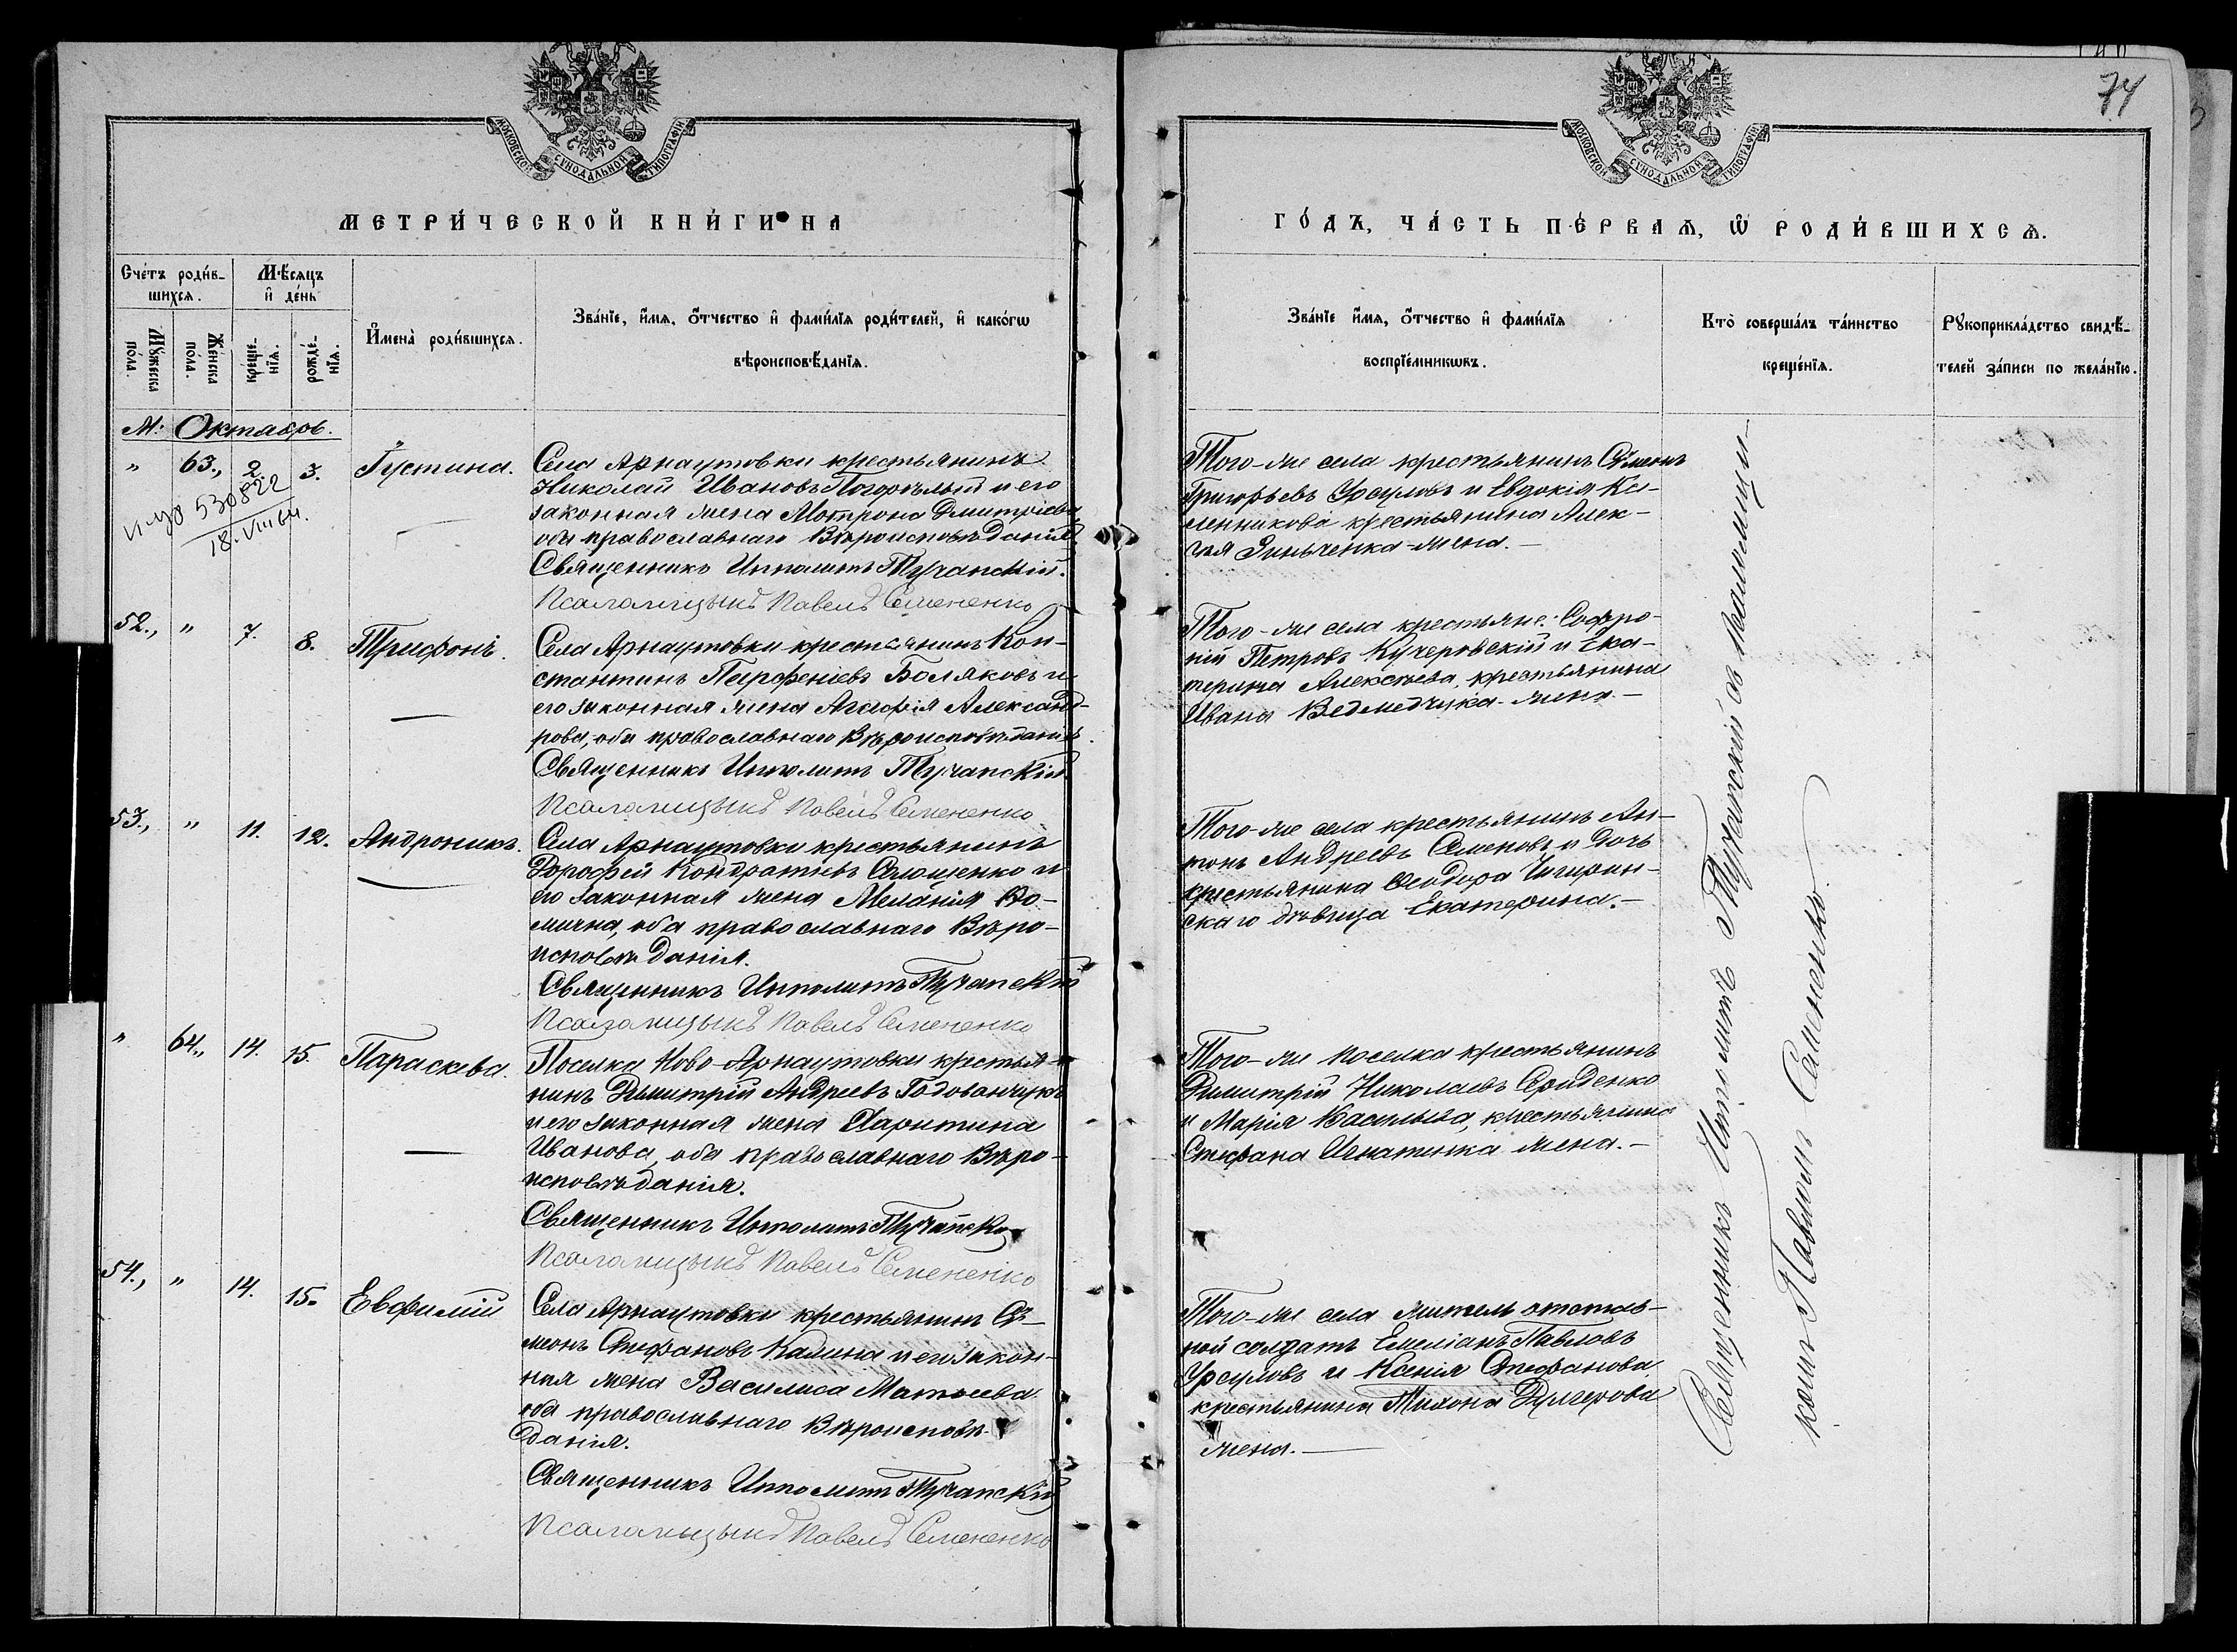 74
МОСКОВСКОЙ СѴНОДАЛЬНОЙ ТИПОГРАФІИ
МОСКОВСКОЙ СѴНОДАЛЬНОЙ ТИПОГРАФІИ
МЕТРИ́ЧЕСКОЙ КНИ́ГИ НА
ГО́ДЪ, ЧА́СТЬ ПЕ́РВАѦ, Ѽ РОДИ́ВШИХСѦ.
Счéтъ роди́в-
шихсѧ.
Мꙋ́жеска
пола.
Же́нска
по́ла.
Мѣ́сяцъ
и де́нь
креще́-
нїѧ.
рожде́-
нїѧ.
И҆мена̀ роди́вшихсѧ.
Зва́нїе, и҆́мѧ, ѻ҆́тчество и҆ фами́лїѧ роди́телей, и҆ како́гѡ
вѣроисповѣ́данїѧ.
Зва́нїе и҆́мѧ, ѻ҆́тчество и҆ фами́лїѧ
воспрїе́мникѡвъ.
Кто̀ соверша́лъ та́инство
креще́нїѧ.
Рꙋкоприкла́дство свидѣ́-
телей за́писи по жела́нїю.
М: Октябрь.
" 63., 2. 3. Іустина.
530822
18.VIII 64.
Села Арнаутовки крестьянинъ
Николай Ивановъ Погорѣлый и его
законная жена Мотрона Дмитріева,
оба православнаго Вѣроисповѣданія.
Священникъ Ипполитъ Тучапскій.
Псаломщикъ Павелъ Семененко
Того-же села крестьянинъ Сѵмеонъ
Григорьевъ Урсуловъ и Евдокія Ка-
менникова крестьянина Алек-
сѣя Зинченка-жена.—
52., " 7. 8. Трифонъ.
Села Арнаутовки крестьянинъ Кон-
стантинъ Парфеніевъ Боляковъ и
его законная жена Агафія Александ-
рова, оба православнаго Вѣроисповѣданія.
Священникъ Ипполитъ Тучапскій.
Псаломщикъ Павелъ Семененко
Того-же села крестьяне: Софро-
ній Петровъ Кучеровскій и Ека-
терина Алексѣева, крестьянина
Ивана Ведмедчука-жена.—
53., " 11. 12. Андроникъ.
Села Арнаутовки крестьянинъ
Дорофей Кондратьевъ Солощенко и
его законная жена Меланія Ѳо-
мична, оба православнаго Вѣро-
исповѣданія.
Священникъ Ипполитъ Тучапскій
Псаломщикъ Павелъ Семененко
Того-же села крестьянинъ Ан-
тонъ Андреевъ Семеновъ и дочь
крестьянина Ѳеодора Чигирин-
скаго дѣвица Екатерина.—
" 64., 14. 15. Параскева.
Поселка Ново-Арнаутовки крестья-
нинъ Димитрій Андреевъ Годованчукъ
и его законная жена Харитина
Иванова, оба православнаго Вѣро-
исповѣданія.
Священникъ Ипполитъ Тучапскій
Псаломщикъ Павелъ Семененко
Того-же поселка крестьянинъ
Димитрій Николаевъ Середенко
и Марія Васильева, крестьянина
Стефана Игнатенка жена.—
54., " 14. 15. Евфимій
Села Арнаутовки крестьянинъ Сѵ-
меонъ Стефановъ Калина и его закон-
ная жена Василиса Матѳеева
оба православнаго Вѣроисповѣ-
данія.
Священникъ Ипполитъ Тучапскій
Псаломщикъ Павелъ Семененко
Того-же села житель отстав-
ной солдатъ Емеліанъ Павловъ
Урсуловъ и Ксенія Стефанова,
крестьянина Тихона Дигерова
жена.—
Священникъ Ипполитъ Тучапскій съ псаломщи-
комъ Павломъ Семененко.